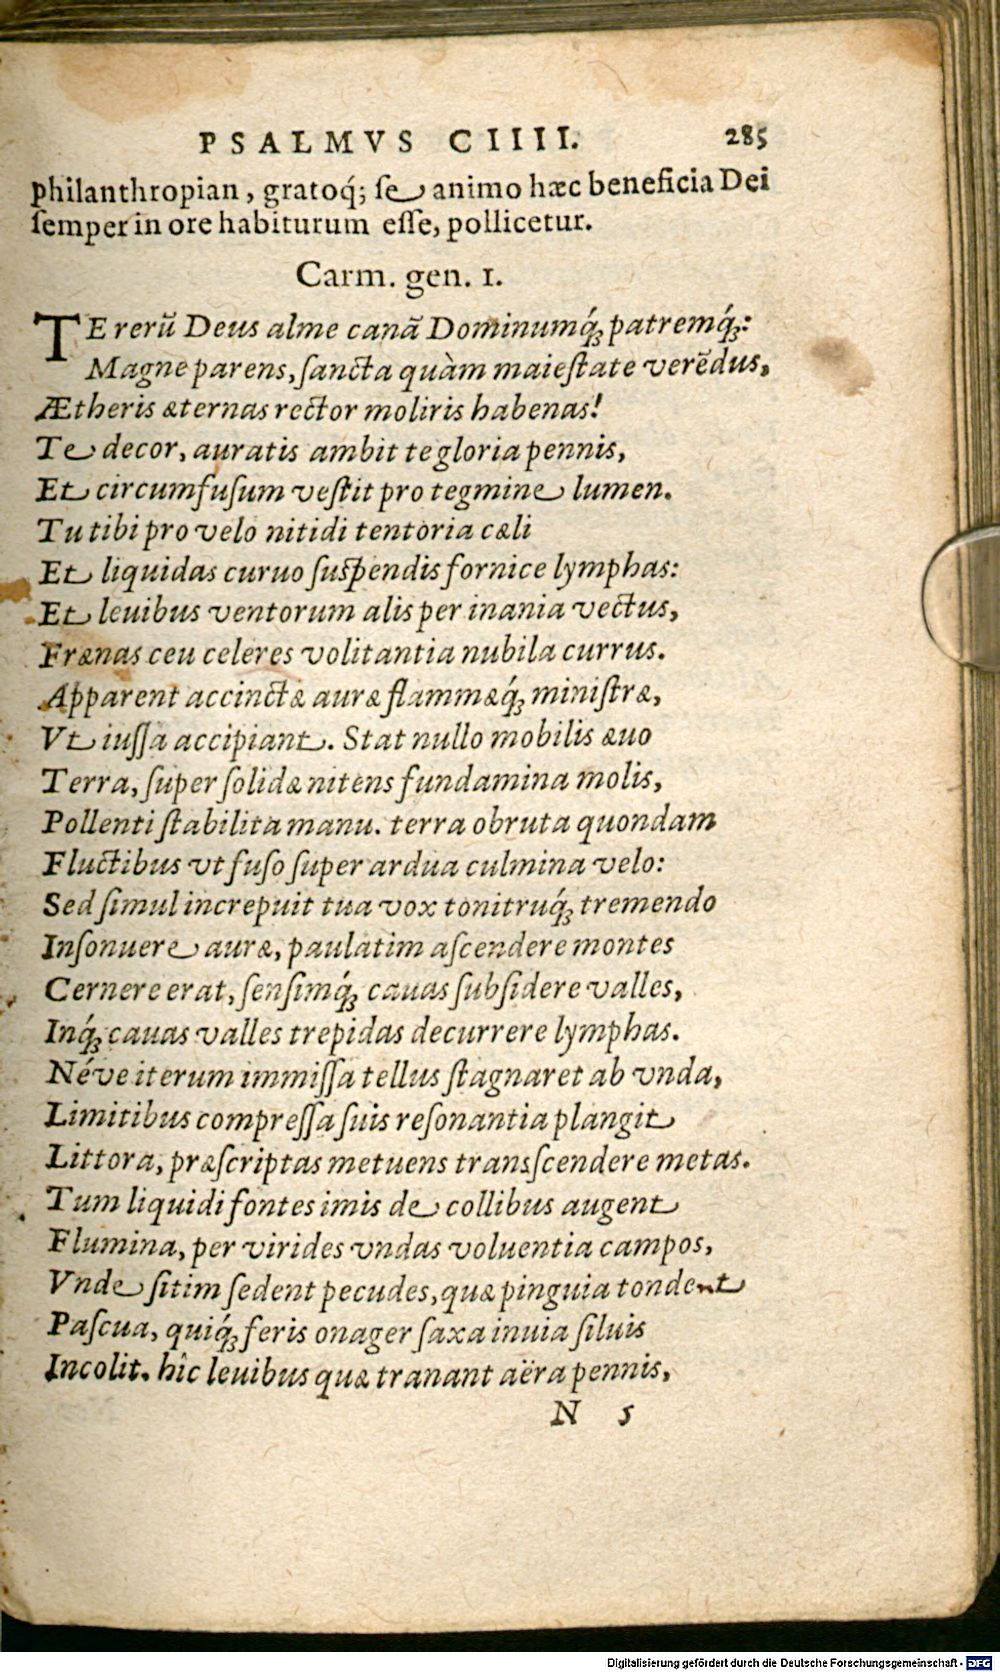 PSALMVS CIIII. 285
philanthropian, gratoq́; se animo hæc beneficia Dei
ſemper in ore habiturum eſſe, pollicetur.
Carm. gen. 1.
TE rerū Deus alme canā Dominumq́ꝫ patremq́ꝫ:
Magne parens, ſancta quàm maieſtate verēdus,
Ætheris æternas rector moliris habenas!
Te decor, auratis ambit te gloria pennis,
Et circumfuſum veſtit pro tegmine lumen.
Tu tibi pro velo nitidi tentoria cæli
Et liquidas curuo ſuſpendis fornice lymphas:
Et leuibus ventorum alis per inania vectus,
Frænas ceu celeres volitantia nubila currus.
Apparent accinctæ auræ flammæq́ꝫ miniſtræ,
Vt iuſſa accipiant. Stat nullo mobilis æuo
Terra, ſuper ſolidæ nitens fundamina molis,
Pollenti ſtabilita manu. terra obruta quondam
Fluctibus vt fuſo ſuper ardua culmina velo:
Sed ſimul increpuit tua vox tonitruq́ꝫ tremendo
Inſonuere auræ, paulatim aſcendere montes
Cernere erat, ſenſimq́ꝫ cauas ſubſidere valles,
Inq́ꝫ cauas valles trepidas decurrere lymphas.
Néve iterum immiſſa tellus ſtagnaret ab vnda,
Limitibus compreſſa ſuis reſonantia plangit
Littora, præſcriptas metuens transſcendere metas.
Tum liquidi fontes imis de collibus augent
Flumina, per virides vndas voluentia campos,
Vnde ſitim ſedent pecudes, quæ pinguia tondent
Paſcua, quiq́ꝫ feris onager ſaxa inuia ſiluis
Incolit. hîc leuibus quæ tranant aëra pennis,
N 5
Digitalisierung gefördert durch die Deutsche Forschungsgemeinschaft - DFG